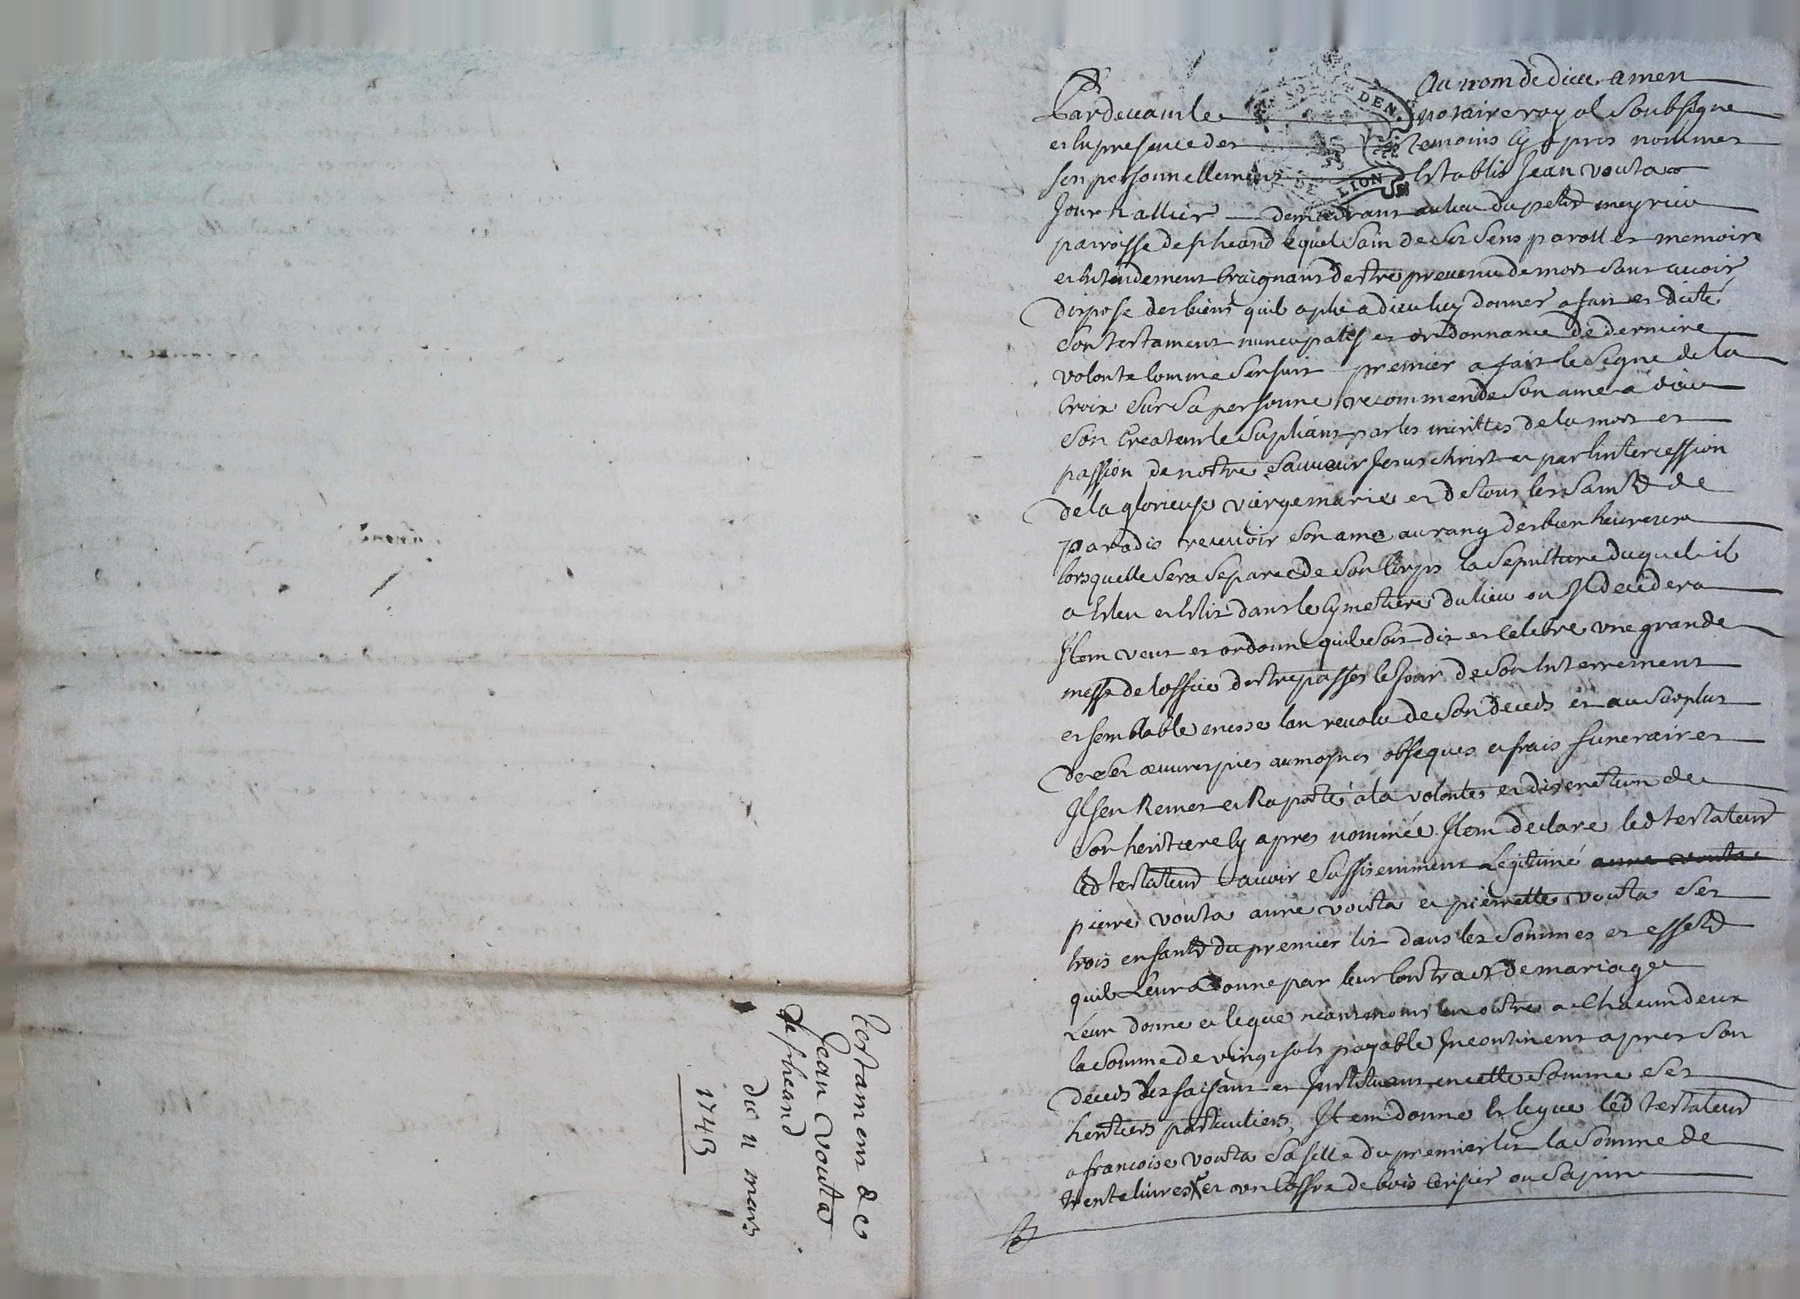 Testament de
Jean Vouta
de st heand
du 11 mars
1743
Au nom de dieu amen
Pardevant le notaire royal Soubsigne
et En presence des temoins Cy apres nommes
sen personnellement Establis Jean vouta
Journallier demeurant au lieu du petit meyrieu
parroisse de st heand lequel Sain de Ses Sens parolle memoire
et Entendement Craignant destre prevenu de mort Sans avoir
dispose des biens quil a plu a dieu luy donner a fait et dicté
Son testament nuncupatif et ordonnance de derniere
volonte Comme Sensuit premier a fait le Signe de la
Croix Sur Sa personne recommende Son ame a dieu
Son Createur le Supliant par les merittes de la mort et
passion de nostre Sauveur Jesus christ et par lintercession
de la glorieuse vierge marie et de tous les Saints de
paradis recevoir Son ame au rang des bien heureux
lorsquelle Sera Separee de Son Corps la Sepulture duquel il
a Eleu et Elit dans le Cymetiere du lieu ou Il decedera
Item veut et ordonne quil Soit dit et Celebre une grande
messe de loffice des trepasses le Jour de Son Enterrement
et semblable messe lan revolu de Son deceds et au Surplus
de Ses œuvres pies aumosnes obseques et frais funeraires
Il sen Remet et Raporte a la volonte et discretion de
Son heritiere Cy apres nommée Item declare led testateur
led testateur avoir Suffisemment Legitimé anne vouta
pierre vouta anne vouta et pierrette vouta Ses
trois enfants du premier lit dans les Sommes et effets
quil Leur a donne par leur Contract de mariage
Leur donne et legue neantmoins En outre a Chacun deux
la Somme de vingt sols payable Incontinent apres Son
deceds Les faisant et Instituant en cette Somme Ses
heritiers particuliers, Item donne et legue led testateur
a francoise vouta Sa fille du premier lit la Somme de
trente livres et un Coffre de bois Cerisier ou Sapin
DE LION